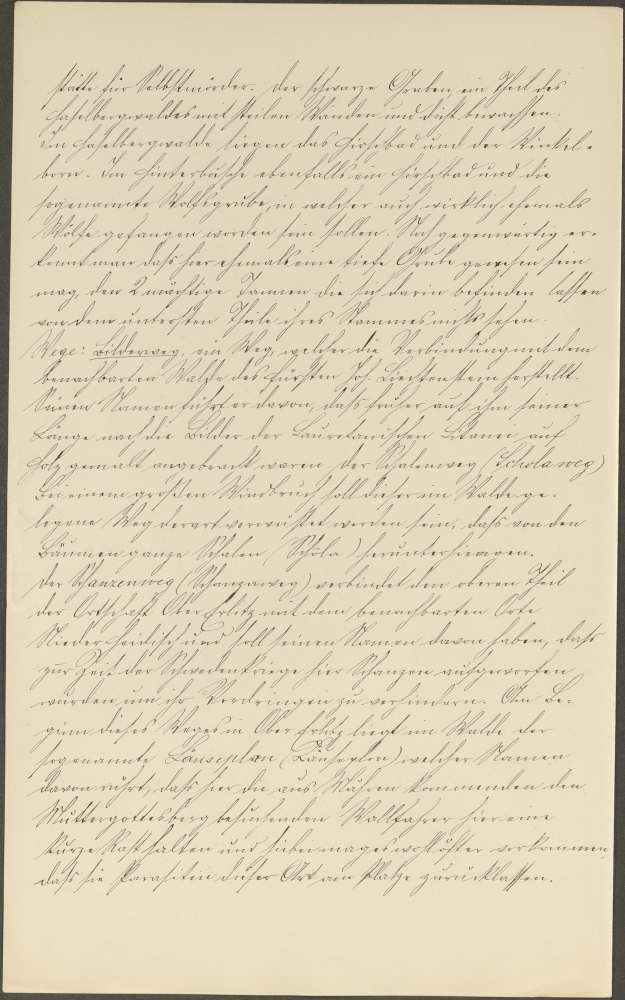 stätte für Selbstmörder. Der schwarze Graben, ein Theil des
Haselbergwaldes mit steilen Wänden und dicht bewachsen.
Im Haselbergwalde liegen das Hirschbad und der Winkel-
born. Im Hinterbusche ebenfalls ein Hirschbad und die
sogenannte Wolfsgrube, in welcher auch wirklich ehemals
Wölfe gefangen worden sein sollen. Noch gegenwärtig er-
kennt man dass hier ehemals eine tiefe Grube gewesen sein
mag, den 2 mächtige Tannen die sich darin befinden lassen
von dem untersten Theile ihres Stammes nichts sehen.
Wege: Bilderweg, ein Weg, welcher die Verbindung mit dem
benachbarten Walde des Fürsten Joh. Liechtenstein herstellt.
Seinen Namen führt er davon, dass früher auf ihm seiner
Länge nach die Bilder der Lauretanischen Litanei auf
Holz gemalt angebracht waren. Der Schalenweg (Scholaweg)
Bei einem großen Windbruch soll dieser im Walde ge-
legene Weg derart verwüstet worden sein, dass von den
Bäumen ganze Schalen (Schola) herunterhiengen.
Der Schanzenweg (Schanzaweg) verbindet den oberen Theil
der Ortschaft Ober Erlitz mit dem benachbarten Orte
Nieder Heidisch und soll seinen Namen davon haben, dass
zur Zeit der Schwedenkriege hier Schanzen aufgeworfen
wurden um ihr Vordringen zu verhindern. Am Be-
ginn dieses Weges in Ober Erlitz liegt im Walde der
sogenannte Läuseplan (Läuseplon) welcher Namen
davon rührt, dass hier die aus Mähren kommenden den
Muttergottesberg besuchenden Wallfahrer hier eine
kurze Rast halten und hiebei mag es wohl öfter vorkommen,
dass sie Parasiten dieser Art am Platze zurücklassen.